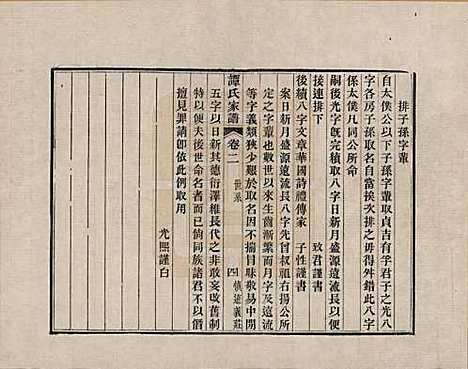 排子孫字輩
自太僕公以下子孫字輩取貞吉有孚君子之光八
字各房子孫取名自當挨次排之毋得舛錯此八字
係太僕凡同公所命
嗣後光字旣完積取八字日新月盛源遠流長以便
接連排下 致君謹書
後續八字文章華國詩禮傳家 子性謹書
案日新月盛源遠流長八字先曾叔祖右揚公所
定之字輩也數世以來生齒漸繁而月字及遠流
等字義類狹少艱於取名因不揣冒昧敬易中間
譚氏家譜 卷二 世系 四 愼遠義莊
五字以日新其德衍澤維長代之非敢妄改舊制
特以便夫後世命名者而已倘同族諸君不以僭
擅見罪請卽依此例取用
光熙謹白